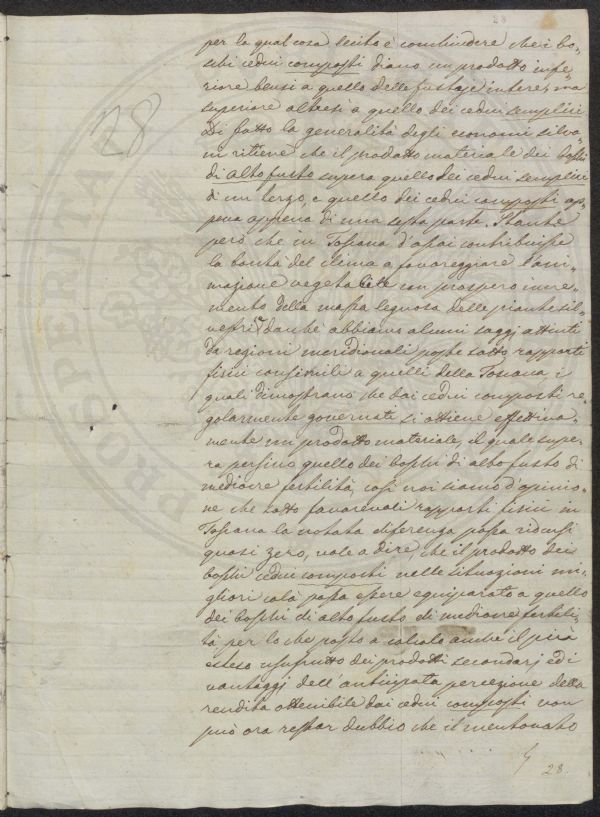 28
28
per la qual cosa lecito è conchiudere che i bo-
schi cedui composti diano un prodotto infe-
riore bensi a quello delle fustaje intere, ma
superiore altresì a quello dei cedui semplici.
Di fatto la generalità degli economi silva-
ni ritiene che il prodotto materiale dei boschi
di alto fusto supera quello dei cedui semplici
di un terzo, e quello dei cedui composti ap-
pena appena di una sesta parte. Stante
però che in Toscana d'assai contribuisse
la bontà del clima a favoreggiare l'ani-
mazione vegetabile con prospero incre-
mento della massa legnosa delle piante sil-
vestri, ed anche abbiamo alcuni saggi attinti
da regioni meridionali poste sotto rapporti
fisici consimili a quelli della Toscana, i
quali dimostrano che dai cedui composti re-
golarmente governati si ottiene effettiva-
mente un prodotto materiale, il quale supe-
ra persino quello dei boschi di alto fusto di
mediocre fertilità, così noi siamo d'opinio-
ne che sotto favorevoli rapporti fisici in
Toscana la notata diferenza possa ridursi
quasi zero, vale a dire, che il prodotto dei
boschi cedui composti nelle situazioni mi-
gliori colà possa essere equiparato a quello
dei boschi di alto fusto di mediocre fertili-
tà per lo che posto a calcolo anche il più
esteso usufrutto dei prodotti secondarj ed i
vantaggi dell'anticipata percezione della
rendita ottenibile dai cedui composti non
può ora restar dubbio che il mentovato
28.
PROSPERITAS